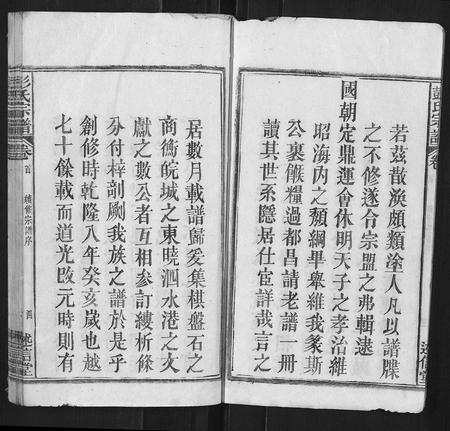 彭氏宗譜
卷
若茲散渙頗類塗人凡以譜牒
之不修遂令宗盟之弗輯逮
國朝定鼎運會休明天子之孝治維
昭海內之頹綱畢舉維我篆斯
公裹餱糧過都昌請老譜一冊
讀其世系隱居仕宦詳哉言之
居數月載譜歸爰集棋盤石之
商衛皖城之東曉泗水港之文
獻之數公者互相參訂縷析條
分付梓剞劂我族之譜於是乎
創修時乾隆八年癸亥歲也越
七十餘載而道光改元時則有
彭氏宗譜
卷首
續修宗譜序
四
述信堂